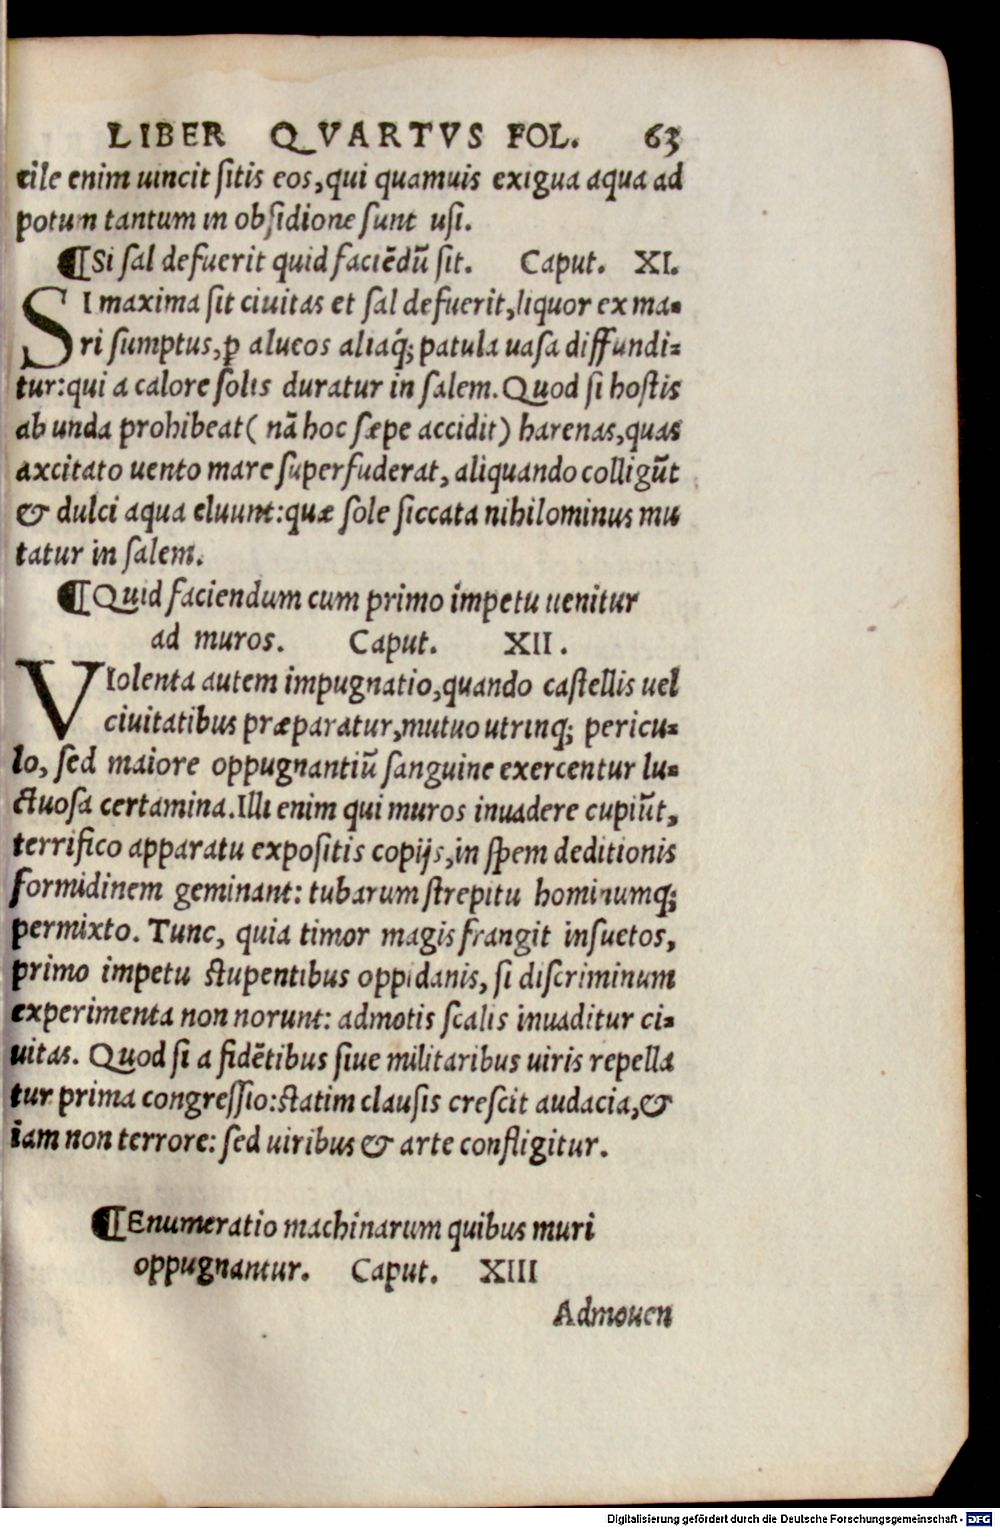 LIBER QVARTVS FOL. 63
cile enim uincit ſitis eos, qui quamuis exigua aqua ad
potum tantum in obſidione ſunt uſi.
¶Si ſal defuerit quid faciēdū ſit. Caput. XI.
SI maxima ſit ciuitas et ſal defuerit, liquor ex ma-
ri ſumptus, ꝑ alueos aliaq́; patula uaſa diffundi-
tur: qui a calore ſolis duratur in ſalem. Quod ſi hoſtis
ab unda prohibeat ( nā hoc ſæpe accidit) harenas, quas
axcitato uento mare ſuperfuderat, aliquando colligūt
& dulci aqua eluunt: quæ ſole ſiccata nihilominus mu
tatur in ſalem.
¶Quid faciendum cum primo impetu uenitur
ad muros. Caput. XII.
VIolenta autem impugnatio, quando caſtellis uel
ciuitatibus præparatur, mutuo utrinq; pericu-
lo, ſed maiore oppugnantiū ſanguine exercentur lu-
ctuoſa certamina. Illi enim qui muros inuadere cupiūt,
terrifico apparatu expoſitis copijs, in ſpem deditionis
formidinem geminant: tubarum ſtrepitu hominumq;
permixto. Tunc, quia timor magis frangit inſuetos,
primo impetu ſtupentibus oppidanis, ſi diſcriminum
experimenta non norunt: admotis ſcalis inuaditur ci-
uitas. Quod ſi a fidētibus ſiue militaribus uiris repella
tur prima congreſſio: ſtatim clauſis creſcit audacia, &
iam non terrore: ſed uiribus & arte confligitur.
¶Enumeratio machinarum quibus muri
oppugnantur. Caput. XIII
Admouen
Digitalisierung gefördert durch die Deutsche Forschungsgemeinschaft - DFG